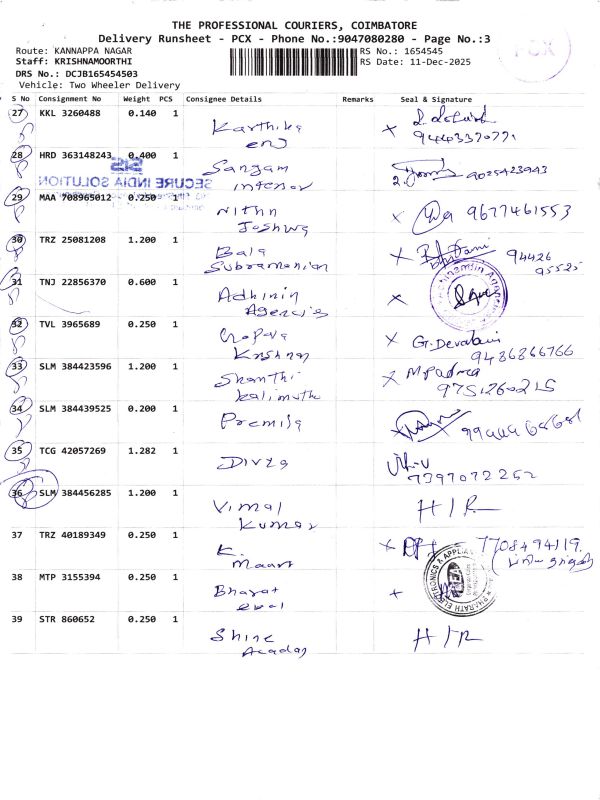 THE PROFESSIONAL COURIERS, COIMBATORE
Delivery Runsheet - PCX - Phone No.:9047080280 - Page No.:3
Route: KANNAPPA NAGAR
Staff: KRISHNAMOORTHI
DRS No.: DCJB165454503
Vehicle: Two Wheeler Delivery
RS No.: 1654545
RS Date: 11-Dec-2025
PCX
S No Consignment No Weight PCS Consignee Details Remarks Seal & Signature
27 KKL 3260488 0.140 1 Karthike
en X
94443370771
28 HRD 363148243 0.400 1 Sangam
interior 2. 9025423943
SIS
SECURE INDIA SOLUTION
29 MAA 708965012 0.250 1 Nithn
Joshwa X 9677461553
30 TRZ 25081208 1.200 1 Bala
Subramanian X 94426
95525
31 TNJ 22856370 0.600 1 Adhinin
Agencies X
32 TVL 3965689 0.250 1 Gopala
Krishnan X G. Devabani
9486866766
33 SLM 384423596 1.200 1 Shanthi
kalimuthu X M Padma
9751260215
34 SLM 384439525 0.200 1 Premila X
35 TCG 42057269 1.282 1 Divya
7397072252
36 SLM 384456285 1.200 1 Vimal
Kumar H/R
37 TRZ 40189349 0.250 1 K.
Maari X 7708494119.
38 MTP 3155394 0.250 1 Bharat
eval X
BHARATH ELECTRONICS & APPLIAN
39 STR 860652 0.250 1 Shine
Acaday H/R